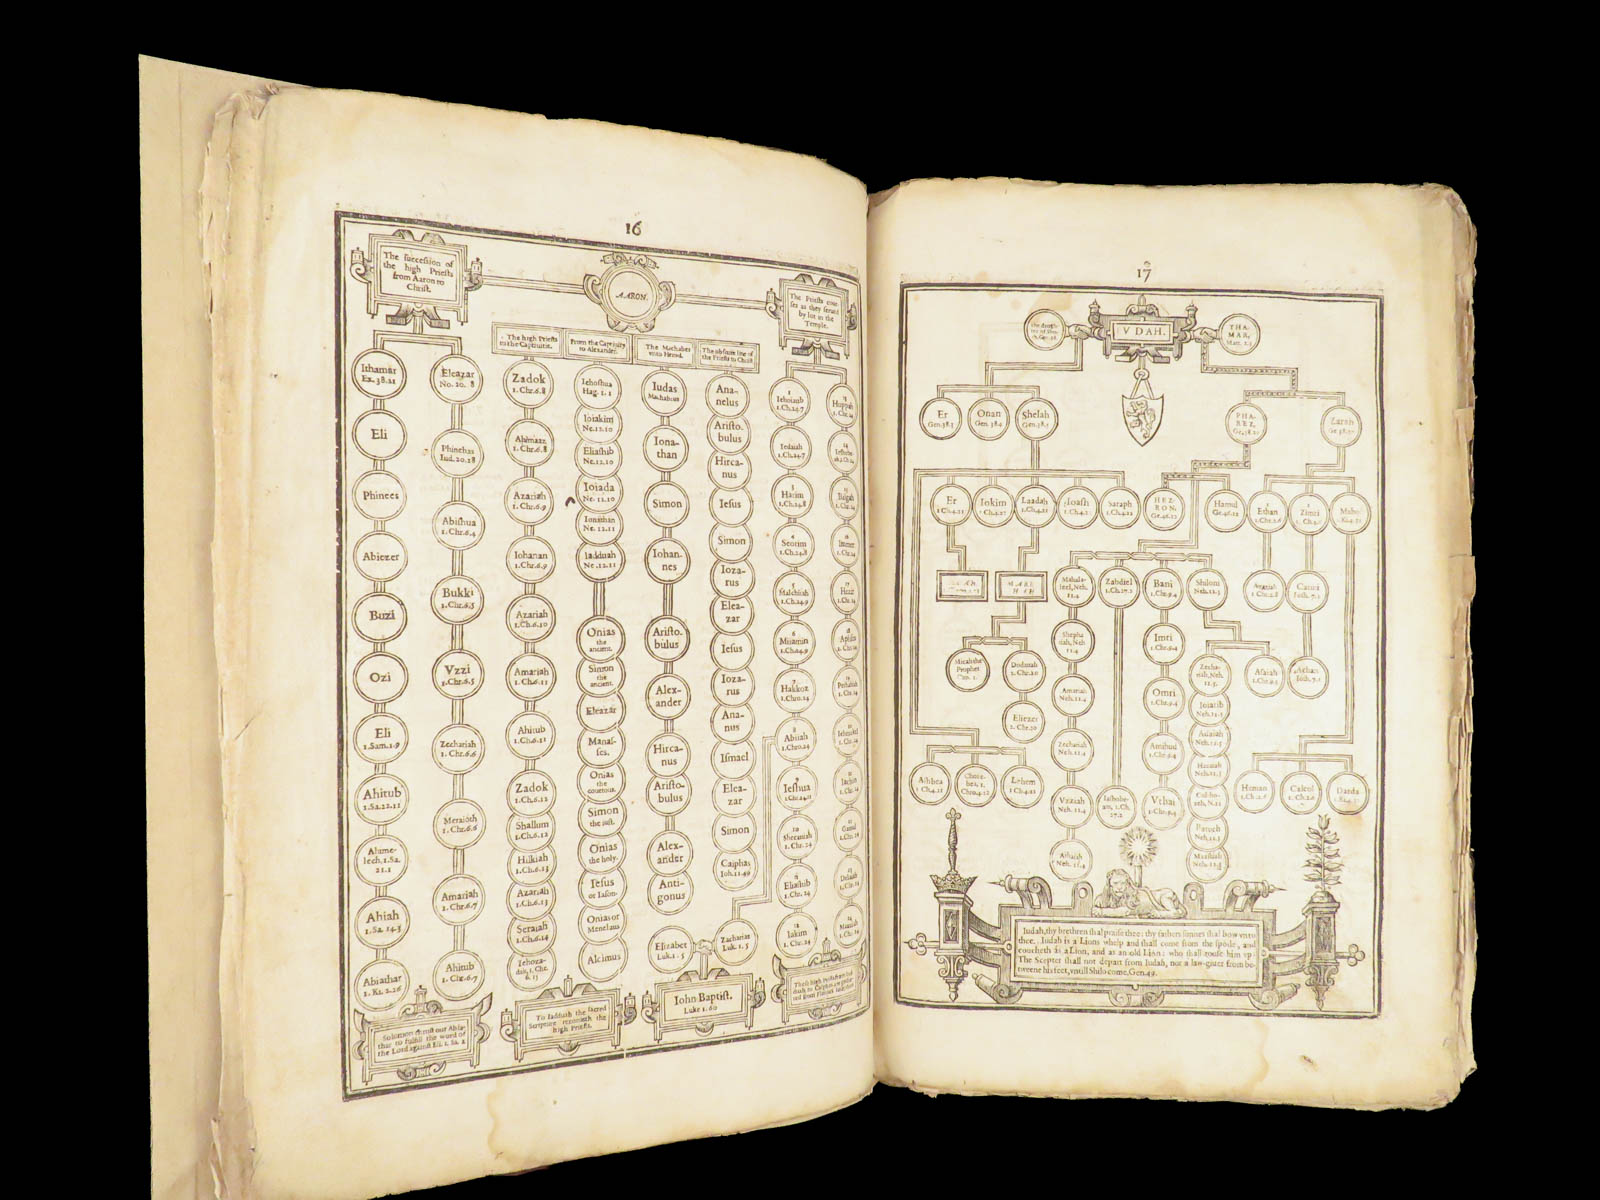 16
The succession of
the high Priests
from Aaron to
Christ.
AARON.
The Priests cour-
ses as they served
by lot in the
Temple.
The high Priests
to the Captivitie.
From the Captivity
to Alexander.
The Machabes
unto Herod.
The obscure line of
the Priests to Christ
Ithamar
Ex. 38.21
Eli
Phinees
Abiezer
Buzi
Ozi
Eli
1.Sam.1.9
Ahitub
1.Sa.22.11
Ahime-
lech, 1.Sa.
21.1
Ahiah
1.Sa. 14.3
Abiathar
1. Ki. 2.26
Solomon
the Lord against Eli. 1. Sa. 2
Eleazar
No. 20. 8
Phinehas
Iud. 20.28
Abishua
1.Chr.6.4
Bukki
1.Chr.6.5
Vzzi
1.Chr.6.5
Zechariah
1. Chr.6.6
Meraioth
1. Chr.6.6
Amariah
1. Chr.6.7
Ahitub
1. Chr.6.7
Zadok
1. Chr.6.8
Ahimaaz
1. Chr.6.8
Azariah
1. Ch.6.9
Iohanan
1. Chr.6.9
Azariah
1. Ch.6.10
Amariah
1. Ch.6.11
Ahitub
1.Ch.6.11
Zadok
1. Ch.6.12
Shallum
1. Ch.6.12
Hilkiah
1. Ch.6.13
Azariah
1. Ch.6.13
Seraiah
1. Ch.6.14
Iehoza-
dak, 1. Chr.
6. 15
To Iadduah the sacred
Scripture reconeth the
high Priests.
Iehoshua
Hag. 1. 1
Ioiakim
Ne.12.10
Eliashib
Ne.12.10
Ioiada
Ne. 12.10
Ionathan
Ne. 12.11
Iadduah
Ne .12.11
Onias
the
ancient.
Simon
the
ancient.
Eleazar
Manas-
ses.
Onias
the
courtous.
Simon
the just.
Onias
the holy.
Iesus
or Iason.
Onias or
Menelaus
Alcimus
Iudas
Machabæus
Iona-
than
Simon
Iohan-
nes
Aristo-
bulus
Alex-
ander
Hirca-
nus
Aristo-
bulus
Alex-
ander
Anti-
gonus
Elizabet
Luk. 1. 5
Ana-
nelus
Aristo-
bulus
Hirca-
nus
Iesus
Simon
Ioza-
rus
Elea-
zar
Iesus
Ioza-
rus
Ana-
nus
Ismael
Elea-
zar
Simon
Caiphas
Ioh.11.49
Zacharias
Luk. 1. 5
Iohn Baptist.
Luke 1. 60
1
Iehoiarib
1.Ch.24.7
Iedaiah
1.Ch.24.7
3
Harim
1.Ch.24.8
4
Seorim
1.Ch.24.8
5
Malchiah
1.Ch.24.9
6
Miiamin
1.Ch.24.9
7
Hakkoz
1.Chro.24
8
Abiiah
1.Chro.24
9
Ieshua
1.Chr.24.11
10
Shecaniah
1. Chr. 24
11
Eliashib
1.Chr. 24
12
Iakim
1. Chr. 24
13
Huppah
1.Chr.24
14
15
Bilgah
1.Chr.24
16
Immer
1.Chr.24
17
Hezir
18
19
Pethahiah
21
Iachin
22
Gamul
23
Delaiah
1.Chr. 24
24
17
IVDAH.
THA-
MAR,
Matt. 1.3
Er
Gen. 38.3
Onan
Gen. 38.4
Shelah
Gen. 38.5
PHA-
REZ,
Ge.38.29
Zarah
Ge.38.30
Er
1.Ch.4.21
Iokim
1.Ch.4.22
Laadah
1.Ch.4.21
Ioash
1.Ch.4.22
Saraph
1.Ch.4.22
HEZ-
RON,
Ge.46.12
Hamul
Ge.46.12
Ethan
1.Chr.2.6
Zimri
Mahol
MARE-
SHAH
Mahala-
leel, Neh.
11.4
Zabdiel
1.Ch.27.2
Bani
1.Chr.9.4
Shiloni
Neh.11.5
Azariah
1.Chr.2.8
Carmi
Iosh. 7.1
Micah the
Prophet
Dodauah
2. Chr.20
Eliezer
2. Chr.20
Shepha
tiah, Neh
11.4
Amariah
Neh.11.4
Zechariah
Neh.11.4
Vzziah
Neh. 11.4
Athaiah
Neh. 11.4
Iashobe-
am, 1.Ch.
27.2
Imri
1.Chr.9.4
Omri
1.Chr.9.4
Amihud
1.Chr.9.4
Vthai
1.Chr.9.4
Zecha-
riah, Neh.
11.5
Ioiarib
Neh.11.5
Adaiah
Neh.11.5
Hazaiah
Neh.11.5
Col-ho-
zeh, N.11
Baruch
Neh.11.5
Maasiah
Neh.11.5
Asaiah
1.Chr.9.5
Achan
Iosh. 7.1
Ashbea
1.Ch.4.21
Choze-
ba, 1.
Chro.4.22
Lehem
1.Ch.4.22
Heman
1.Ch.2.6
Calcol
1.Ch.2.6
Darda
1.Ki.4.31
Iudah, thy brethren shal praise thee: thy fathers sonnes shal bow vnto
thee. Iudah is a Lions whelp and shall come from the spoile, and
coucheth as a Lion, and as an old Lion: who shall rouse him vp?
The Scepter shall not depart from Iudah, nor a law-giuer from be-
tweene his feet, vntill Shilo come, Gen.49.